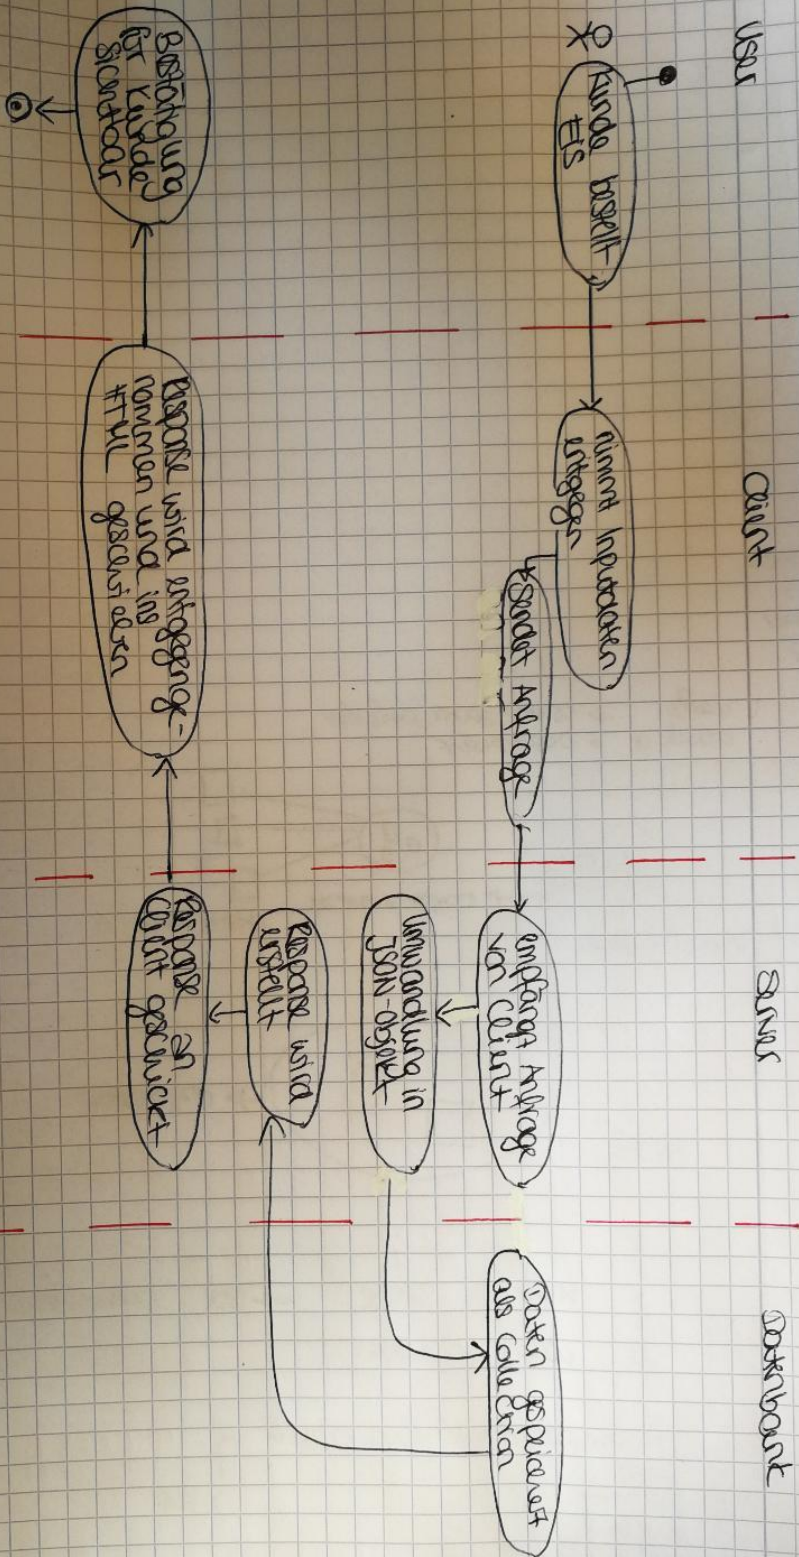 User
Client
Server
Datenbank
Kunde bestellt
EIS
nimmt Inputdaten
entgegen
Sendet Anfrage
empfängt Anfrage
von Client
Umwandlung in
JSON-Objekt
Daten gespeichert
als Collection
Response wird
erstellt
Response an
Client geschickt
Response wird entgegenge-
nommen und ins
HTML geschrieben
Bestätigung
für Kunde
sichtbar